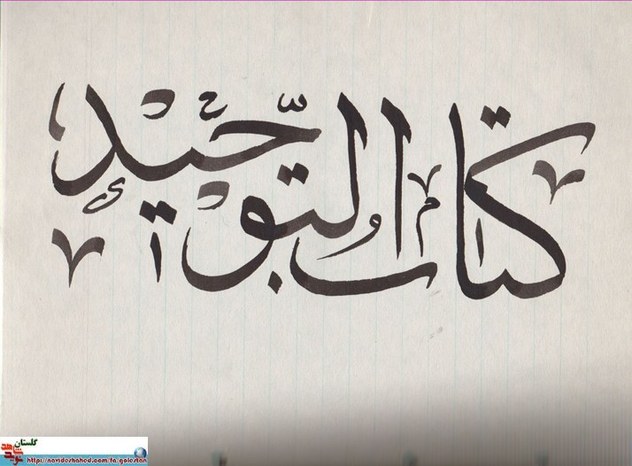 كتاب التوحيد
گلستان
https://navideshahed.com/fa/golestan